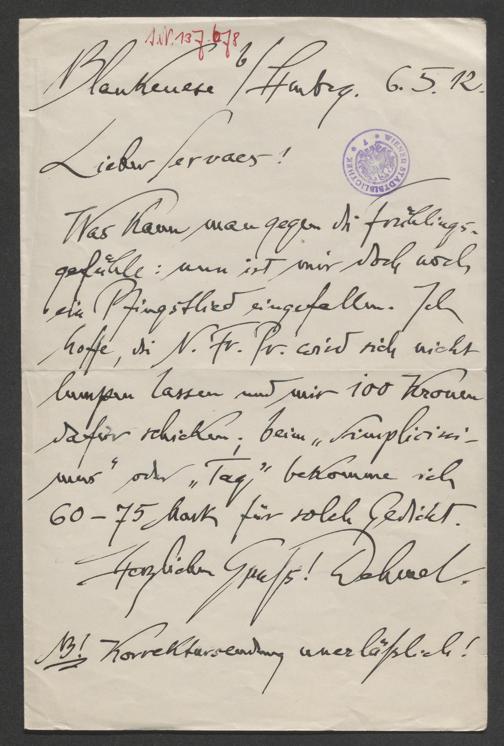 J.N. 137.678
Blankenese b/Hmbrg. 6.5.12.
WIENER STADTBIBLIOTHEK
Lieber Servaes!
Was kann man gegen die Frühlings-
gefühle: nun ist mir doch noch
ein Pfingstlied eingefallen. Ich
hoffe, die N. Fr. Pr. wird sich nicht
lumpen lassen und mir 100 Kronen
dafür schicken; beim „Simplicissi-
mus" oder „Tag" bekomme ich
60–75 Mark für solch Gedicht.
Herzlichen Gruß! Dehmel.
NB! Korrektursendung unerläßlich!